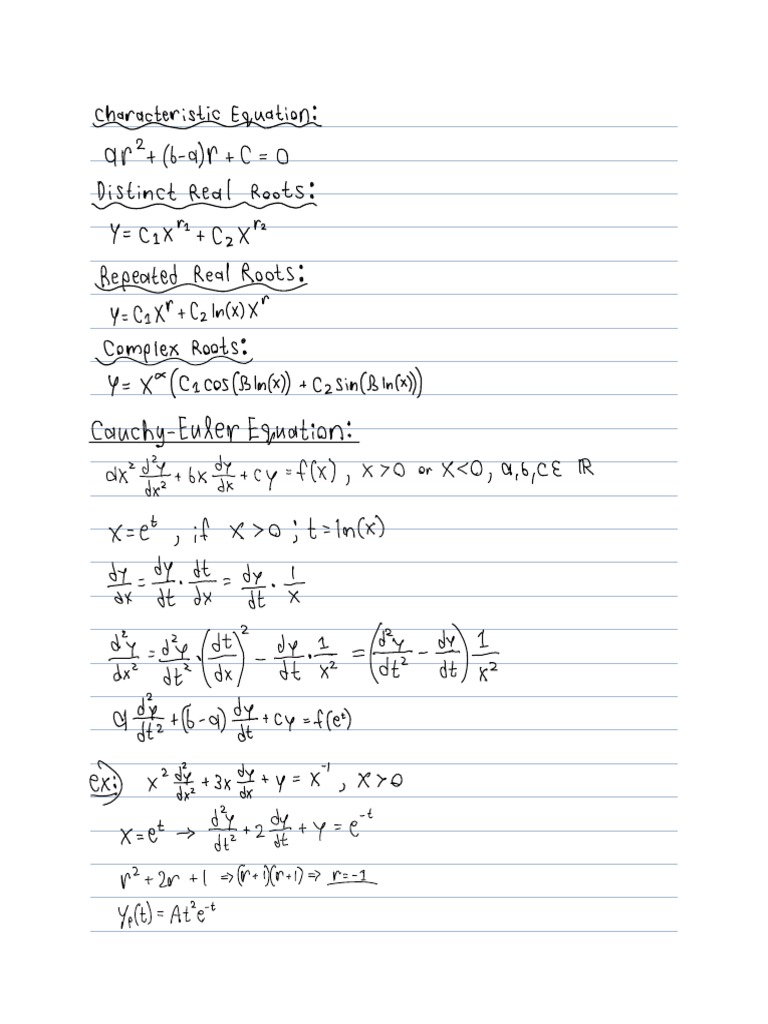 Characteristic Equation:
ar² + (b-a)r + C = 0
Distinct Real Roots:
Y = C₁X^r₁ + C₂X^r₂
Repeated Real Roots:
Y = C₁X^r + C₂ln(x)X^r
Complex Roots:
Y = X^α(C₁cos(Bln(x)) + C₂sin(Bln(x)))
Cauchy-Euler Equation:
ax² d²y/dx² + bx dy/dx + cy = f(x), x>0 or x<0, a,b,c ∈ ℝ
x = e^t, if x>0; t = ln(x)
dy/dx = dy/dt · dt/dx = dy/dt · 1/x
d²y/dx² = d²y/dt² · (dt/dx)² - dy/dt · 1/x² = (d²y/dt² - dy/dt) 1/x²
a d²y/dt² + (b-a) dy/dt + cy = f(e^t)
ex: x² d²y/dx² + 3x dy/dx + y = x^-1, x>0
x = e^t → d²y/dt² + 2 dy/dt + y = e^-t
r² + 2r + 1 ⇒ (r+1)(r+1) ⇒ r = -1
Yₚ(t) = At²e^-t